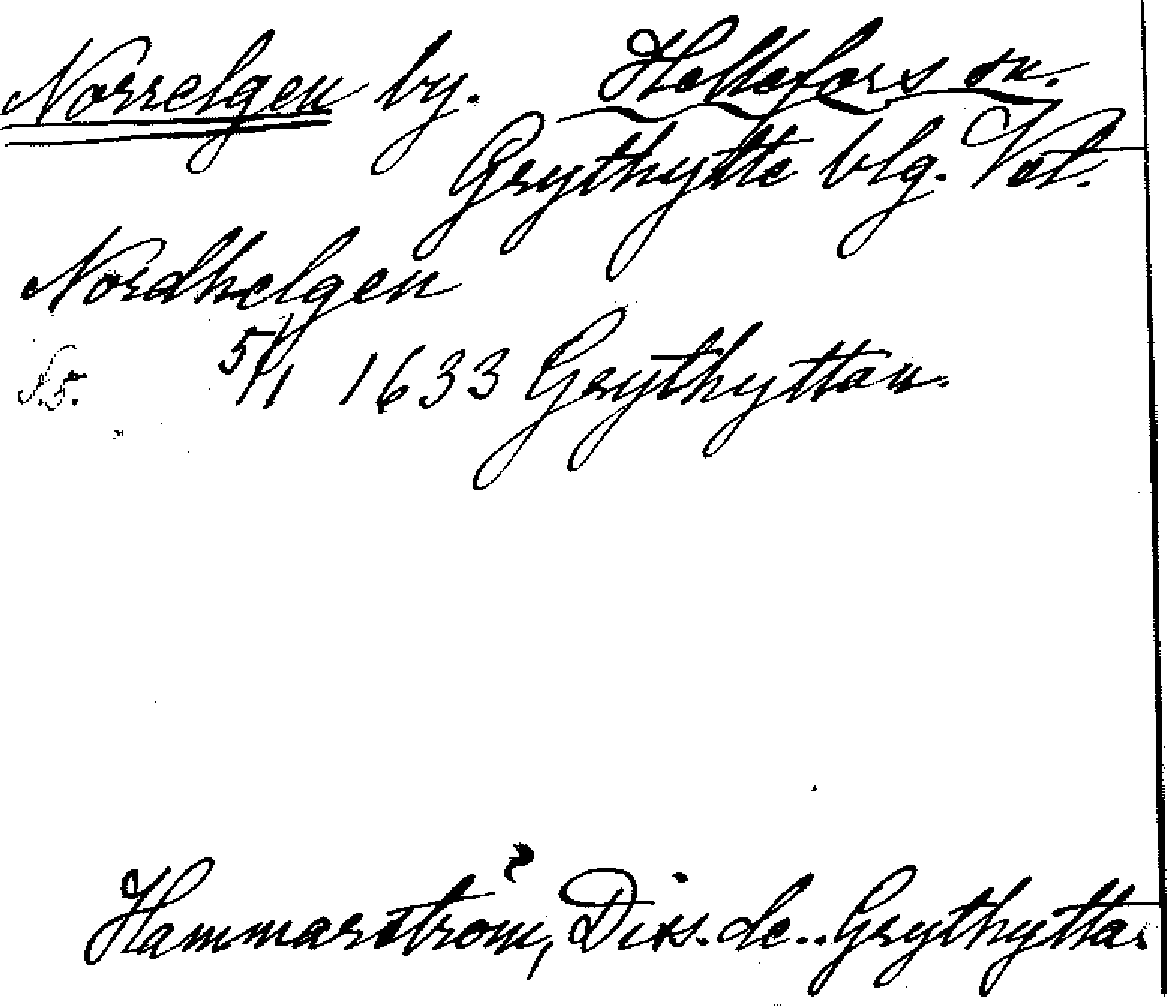 Norrelgen by. Hellefors sn.
Grythytte blg. Vst.
Nordhelgen
5/1 1633 Grythyttan.
Hammarström, Diss. de.. Grythytta.